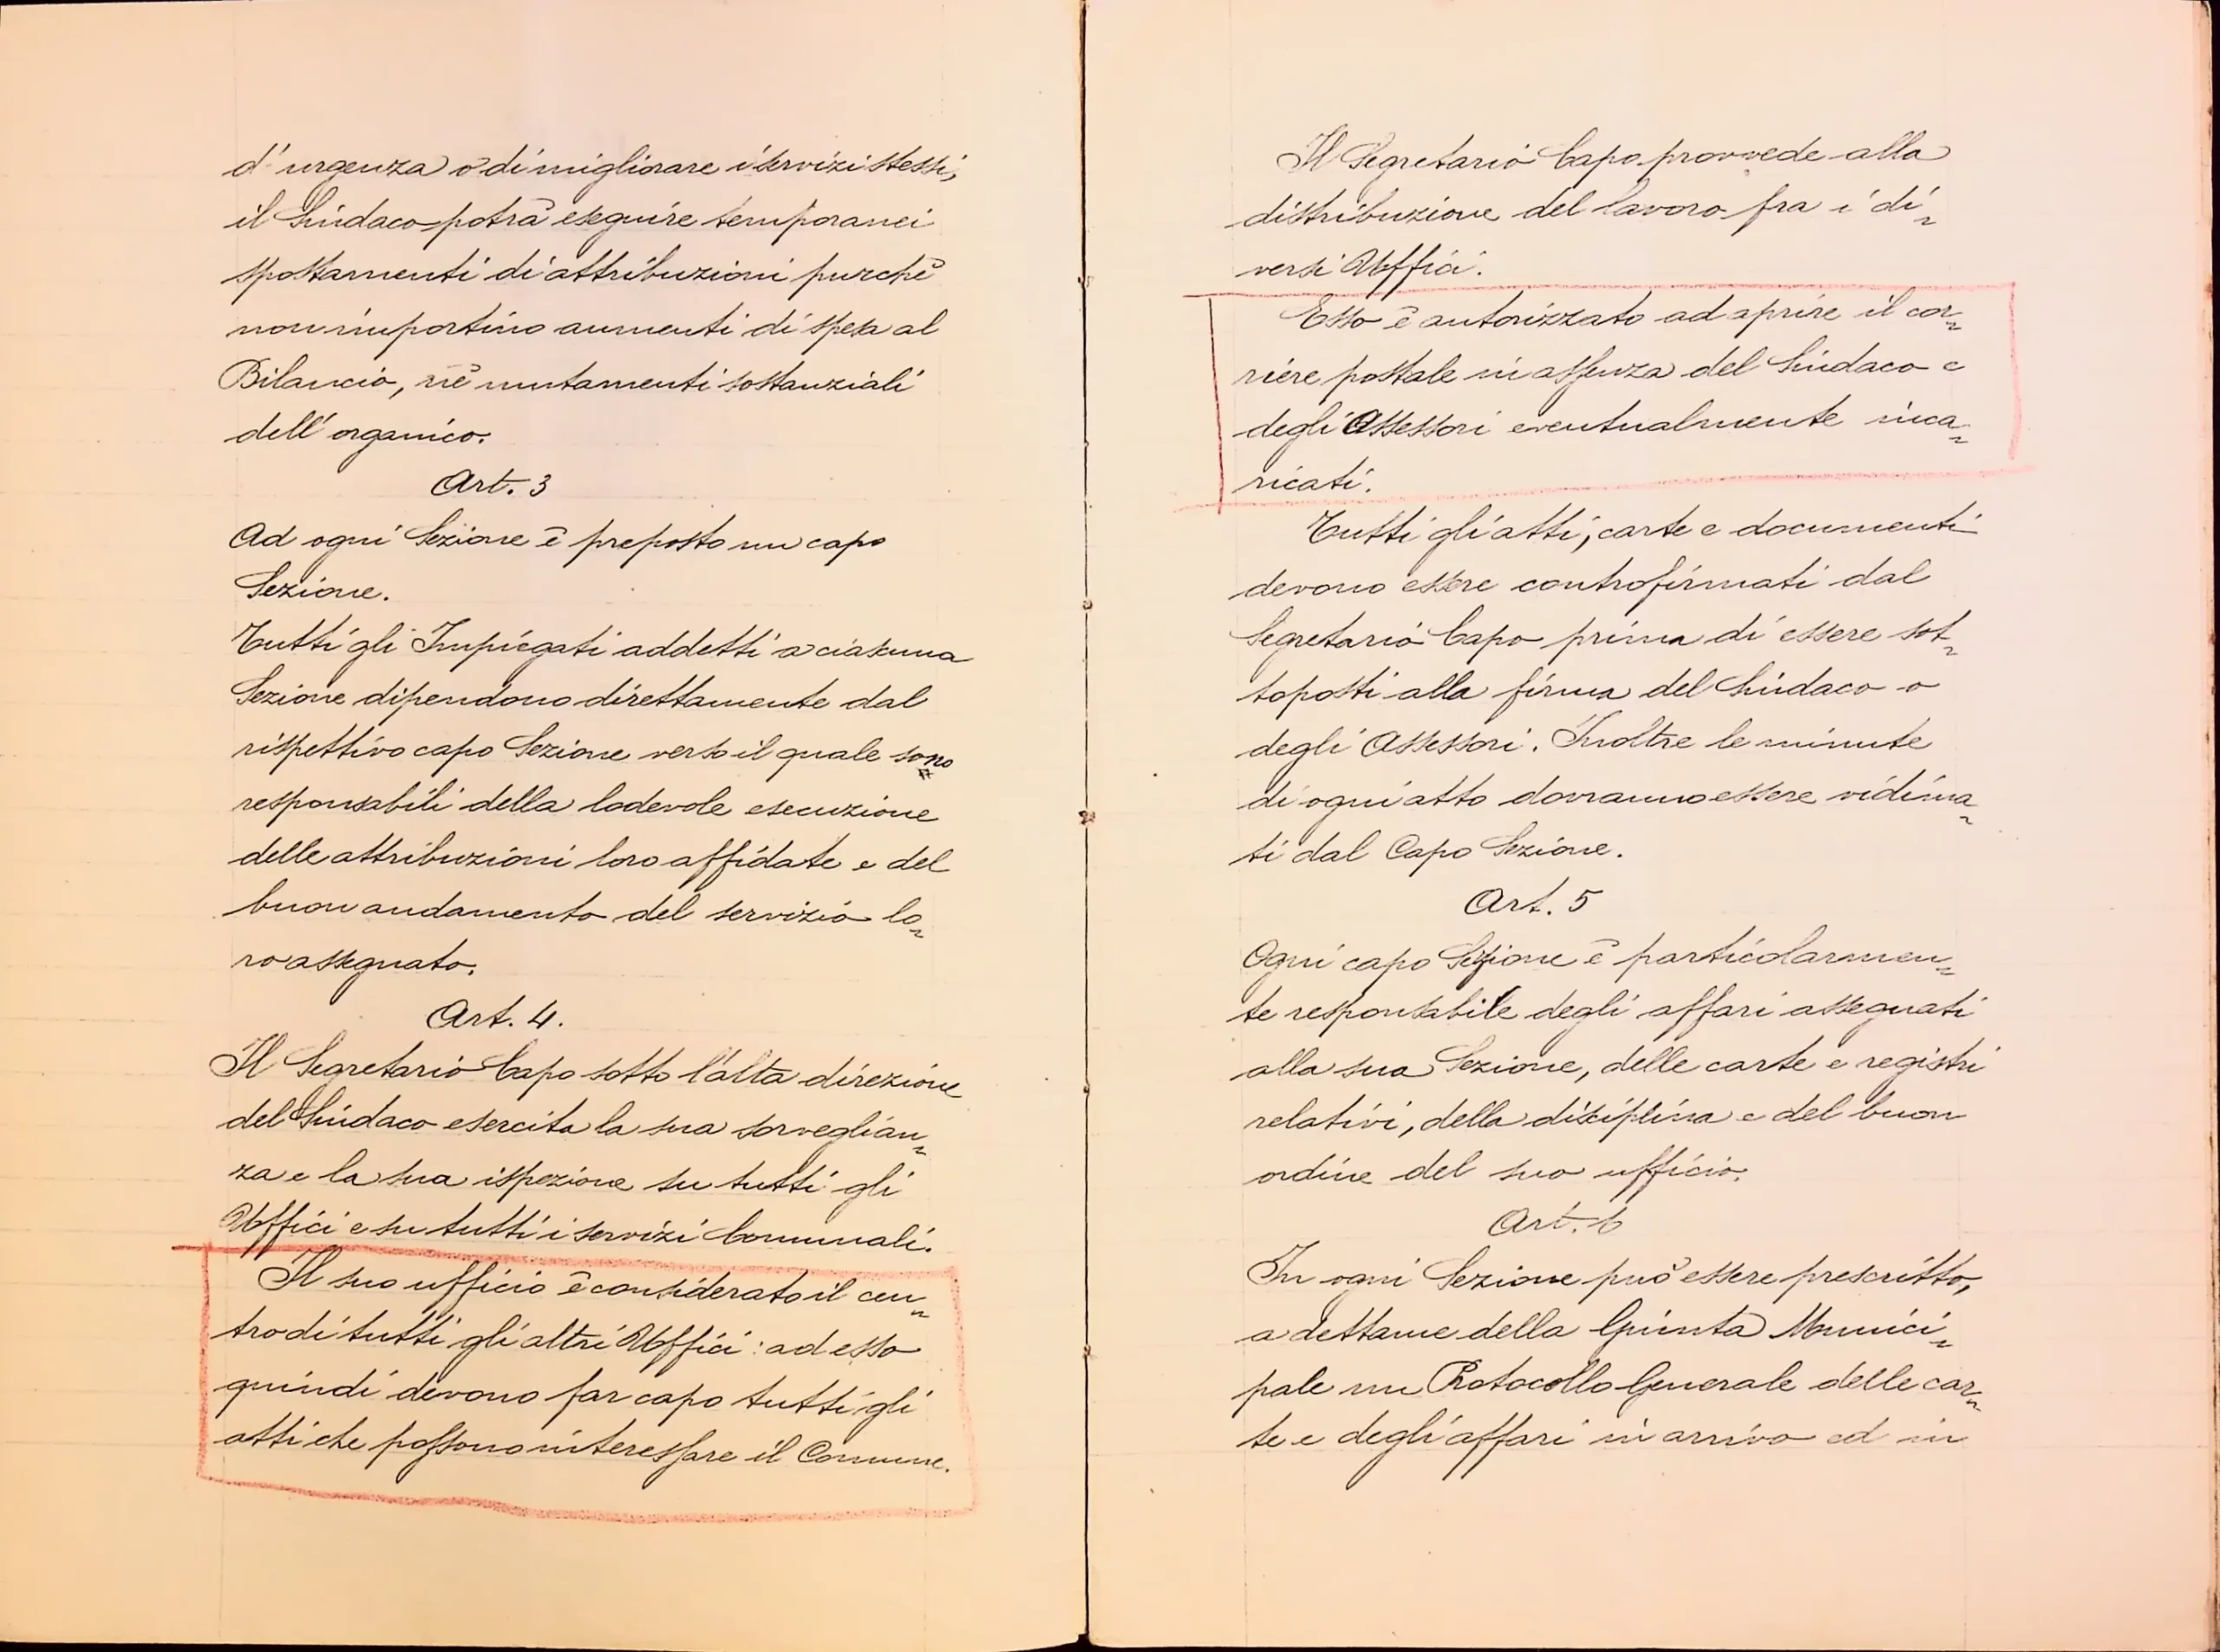 d'urgenza o di migliorare i servizi stessi,
il Sindaco potrà eseguire temporanei
spostamenti di attribuzioni purchè
non importino aumenti di spesa al
Bilancio, nè mutamenti sostanziali
dell'organico.
Art. 3
Ad ogni Sezione è preposto un capo
Sezione.
Tutti gli Impiegati addetti a ciascuna
Sezione dipendono direttamente dal
rispettivo capo Sezione verso il quale sono
responsabili della lodevole esecuzione
delle attribuzioni loro affidate e del
buon andamento del servizio lo=
ro assegnato.
Art. 4.
Il Segretario Capo sotto l'alta direzione
del Sindaco esercita la sua sorveglian=
za e la sua ispezione su tutti gli
Uffici e su tutti i servizi Comunali.
Il suo ufficio è considerato il cen=
tro di tutti gli altri Uffici: ad esso
quindi devono far capo tutti gli
atti che possono interessare il Comune.
Il Segretario Capo provvede alla
distribuzione del lavoro fra i di=
versi Uffici.
Esso è autorizzato ad aprire il cor=
riere postale in assenza del Sindaco e
degli Assessori eventualmente inca=
ricati.
Tutti gli atti, carte e documenti
devono essere controfirmati dal
Segretario Capo prima di essere sot=
toposti alla firma del Sindaco o
degli Assessori. Inoltre le minute
di ogni atto dovranno essere vidima=
ti dal Capo Sezione.
Art. 5
Ogni capo Sezione è particolarmen=
te responsabile degli affari assegnati
alla sua Sezione, delle carte e registri
relativi, della disciplina e del buon
ordine del suo ufficio.
Art. 6
In ogni Sezione può essere prescritto,
a dettame della Giunta Munici=
pale un Protocollo Generale delle car=
te e degli affari in arrivo ed in